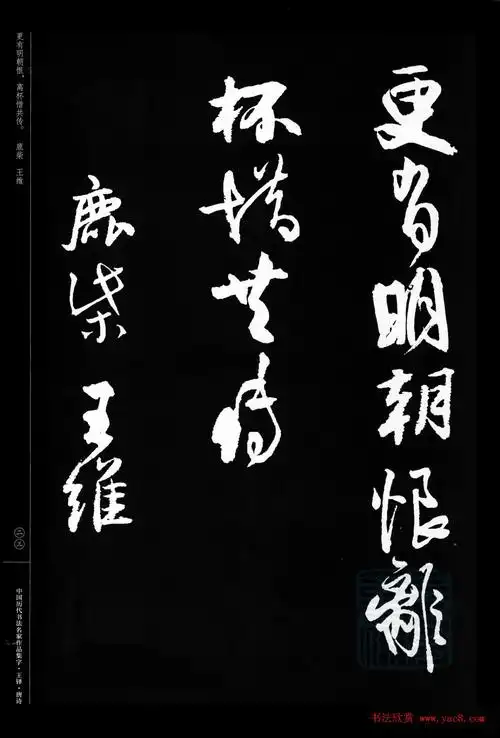 更有明朝恨离
杯惜共传
鹿柴 王维
更有明朝恨,离杯惜共传。 鹿柴 王维
二三
中国历代书法名家作品集字·王铎·唐诗
书法欣赏 www.yac8.com